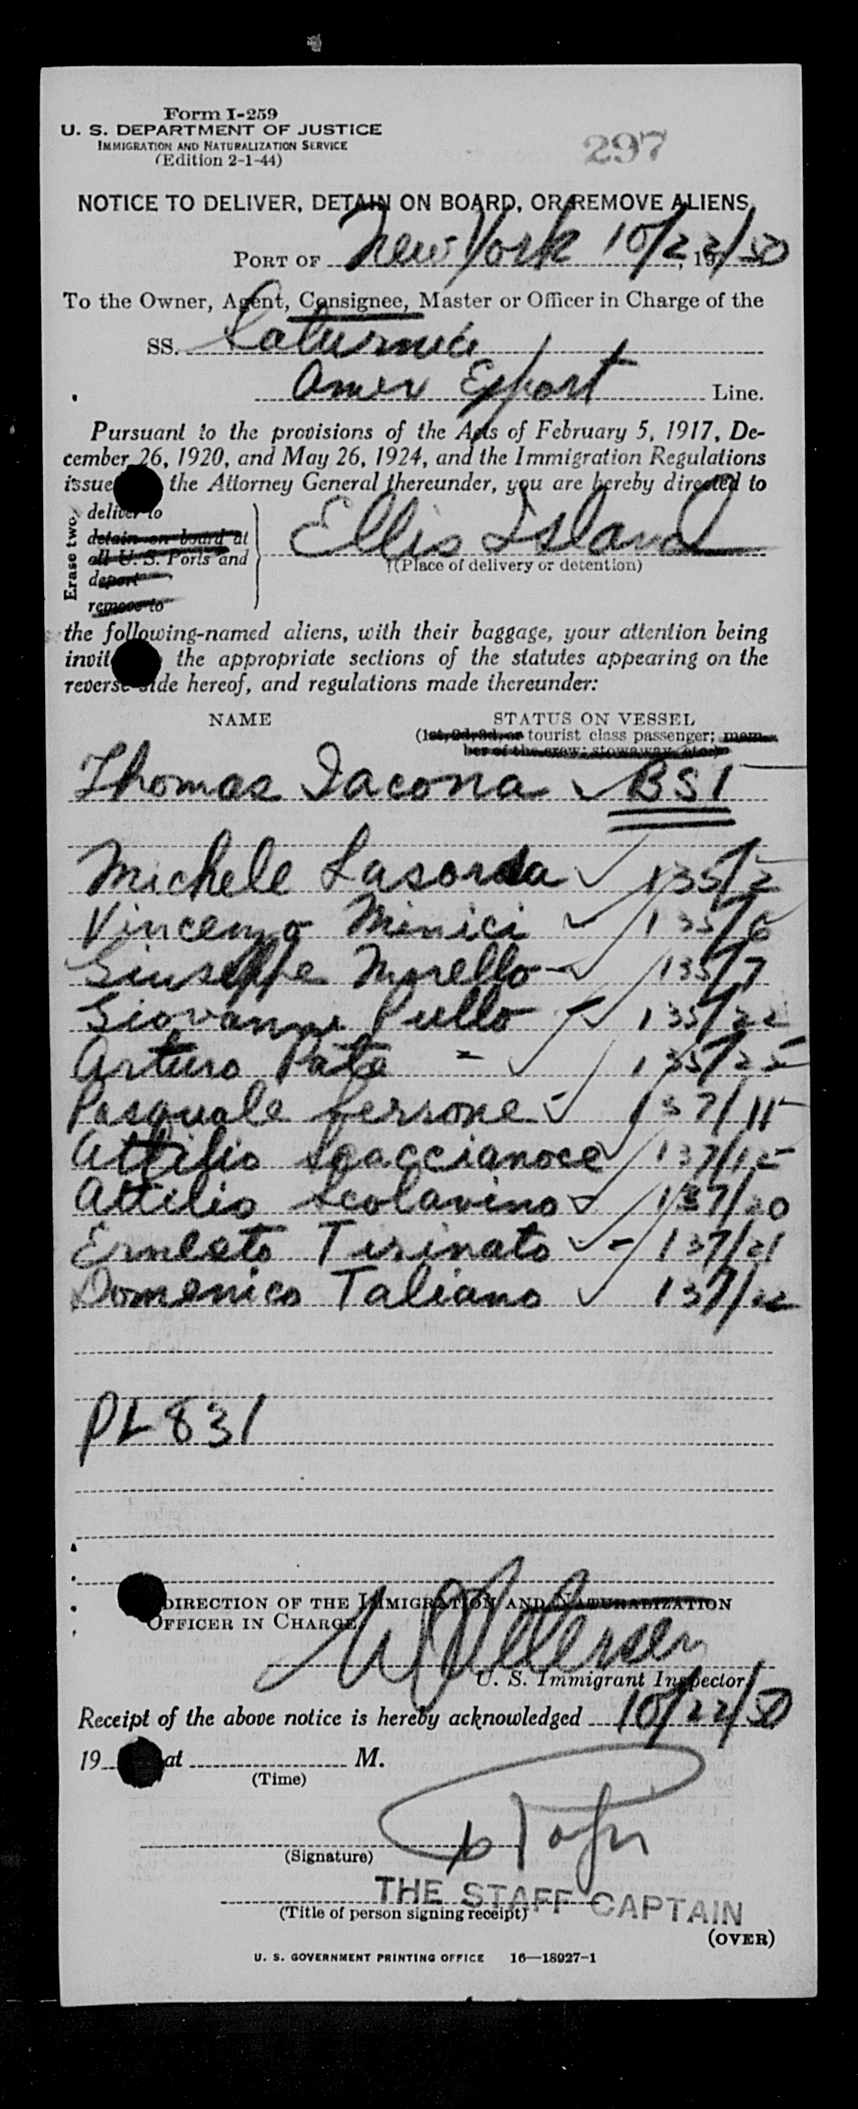 Form I-259
U. S. DEPARTMENT OF JUSTICE
IMMIGRATION AND NATURALIZATION SERVICE
(Edition 2-1-44)
297
NOTICE TO DELIVER, DETAIN ON BOARD, OR REMOVE ALIENS
PORT OF New York 10/22/50, 19
To the Owner, Agent, Consignee, Master or Officer in Charge of the
SS. Saturnia
Amer Export Line.
Pursuant to the provisions of the Acts of February 5, 1917, De-
cember 26, 1920, and May 26, 1924, and the Immigration Regulations
issue the Attorney General thereunder, you are hereby directed to
Erase two.
deliver to
detain on board at
all U. S. Ports and
deport
remove to
Ellis Island
(Place of delivery or detention)
the following-named aliens, with their baggage, your attention being
invit the appropriate sections of the statutes appearing on the
reverse side hereof, and regulations made thereunder:
NAME STATUS ON VESSEL
(1st, 2d, 3d, or tourist class passenger; mem-
ber of the crew; stowaway, etc.)
Thomas Iacona ✓ BSI
Michele Lasorda ✓ 135/2
Vincenzo Minici ✓ 135/6
Giuseppe Morello - ✓ 135/7
Giovanni Pullo - ✓ 135/22
Arturo Pata - ✓ 135/25
Pasquale Perrone - ✓ 137/11
Attilio Scaccianoce ✓ 137/15
Attilio Scolavino ✓ 137/20
Ernesto Tirinato ✓ - 137/21
Domenico Taliano ✓ 137/22
PL 831
DIRECTION OF THE IMMIGRATION AND NATURALIZATION
OFFICER IN CHARGE
Petersen
U. S. Immigrant Inspector
Receipt of the above notice is hereby acknowledged 10/22/50
19 at M.
(Time)
(Signature)
THE STAFF CAPTAIN
(Title of person signing receipt)
(OVER)
U. S. GOVERNMENT PRINTING OFFICE 16—18927-1